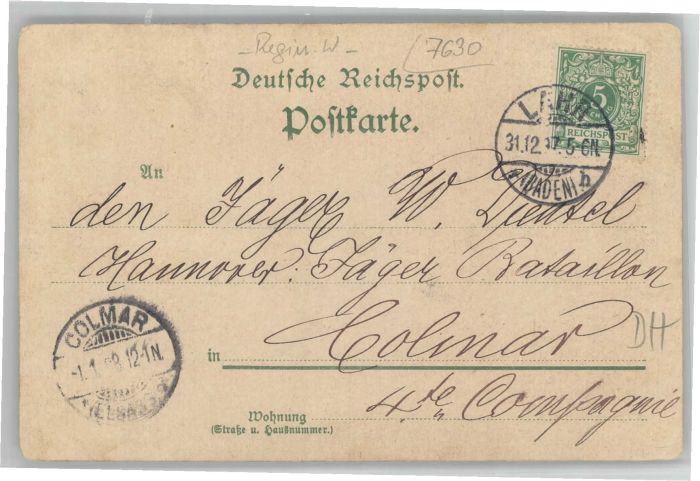 Regim. W
7630
Deutsche Reichspost.
Postkarte.
5
REICHSPOST
LAHR
31.12. 97. 5-6N.
(BADEN) b
An
den Jäger W. Deutsel
Hannover. Jäger Bataillon
COLMAR
-1.1.98.12-1N.
in Colmar
DH
4.te Compagnie
Wohnung
(Straße u. Hausnummer.)